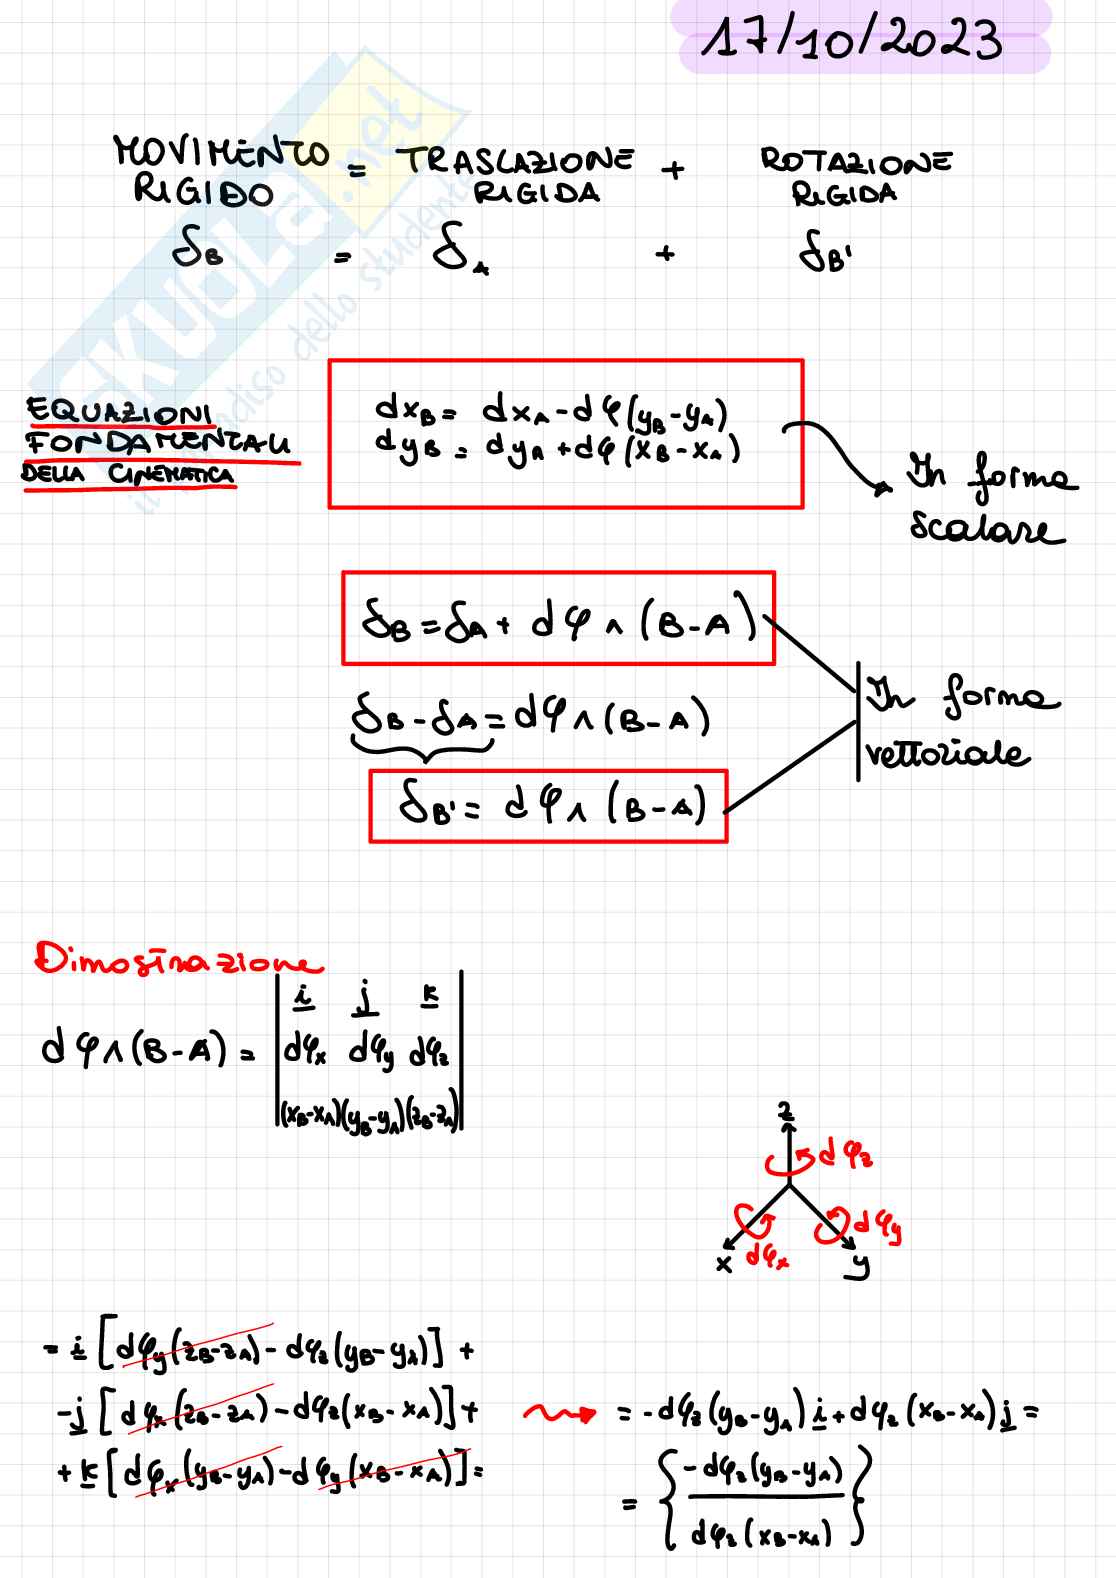 17/10/2023
MOVIMENTO RIGIDO = TRASLAZIONE RIGIDA + ROTAZIONE RIGIDA
δB = δA + δB'
EQUAZIONI
FONDAMENTALI
DELLA CINEMATICA
dxB = dxA - dφ(yB - yA)
dyB = dyA + dφ(xB - xA)
In forma
scalare
δB = δA + dφ ∧ (B - A)
δB - δA = dφ ∧ (B - A)
δB' = dφ ∧ (B - A)
In forma
vettoriale
Dimostrazione
i j k
dφ ∧ (B - A) = dφx dφy dφz
(xB-xA)(yB-yA)(zB-zA)
z
dφz
dφy
dφx
x
y
= i [dφy(zB-zA) - dφz(yB-yA)] +
-j [dφx(zB-zA) - dφz(xB-xA)] +
+ k [dφx(yB-yA) - dφy(xB-xA)] =
= -dφz(yB-yA) i + dφz(xB-xA) j =
= { -dφz(yB-yA)
dφz(xB-xA) }
SKUOLA.net
il paradiso dello studente